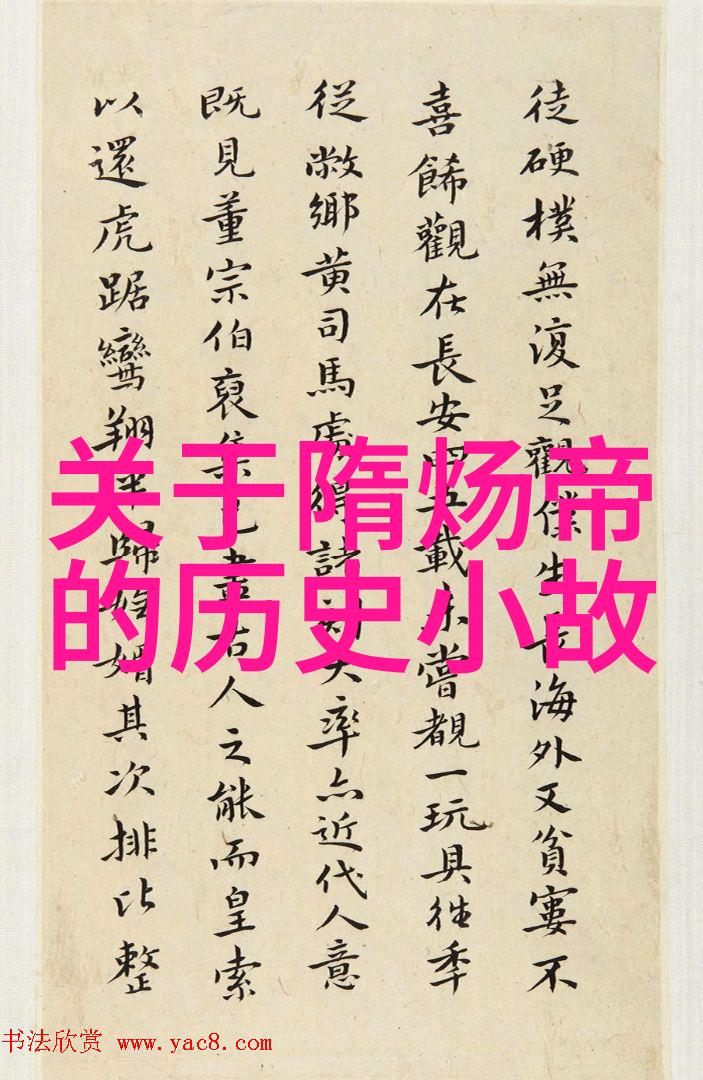 关于隋炀帝
的历史小故
徒硬樸無復足觀僕生長海外又貧窶不
喜餙觀在長安四五載未嘗覩一玩具徃季
從敝鄉黄司馬處得大率亦近代人意
既見董宗伯裒集古人之能而皇索
以還虎踞鸞翔歸其次排比整
书法欣赏 www.yac8.com